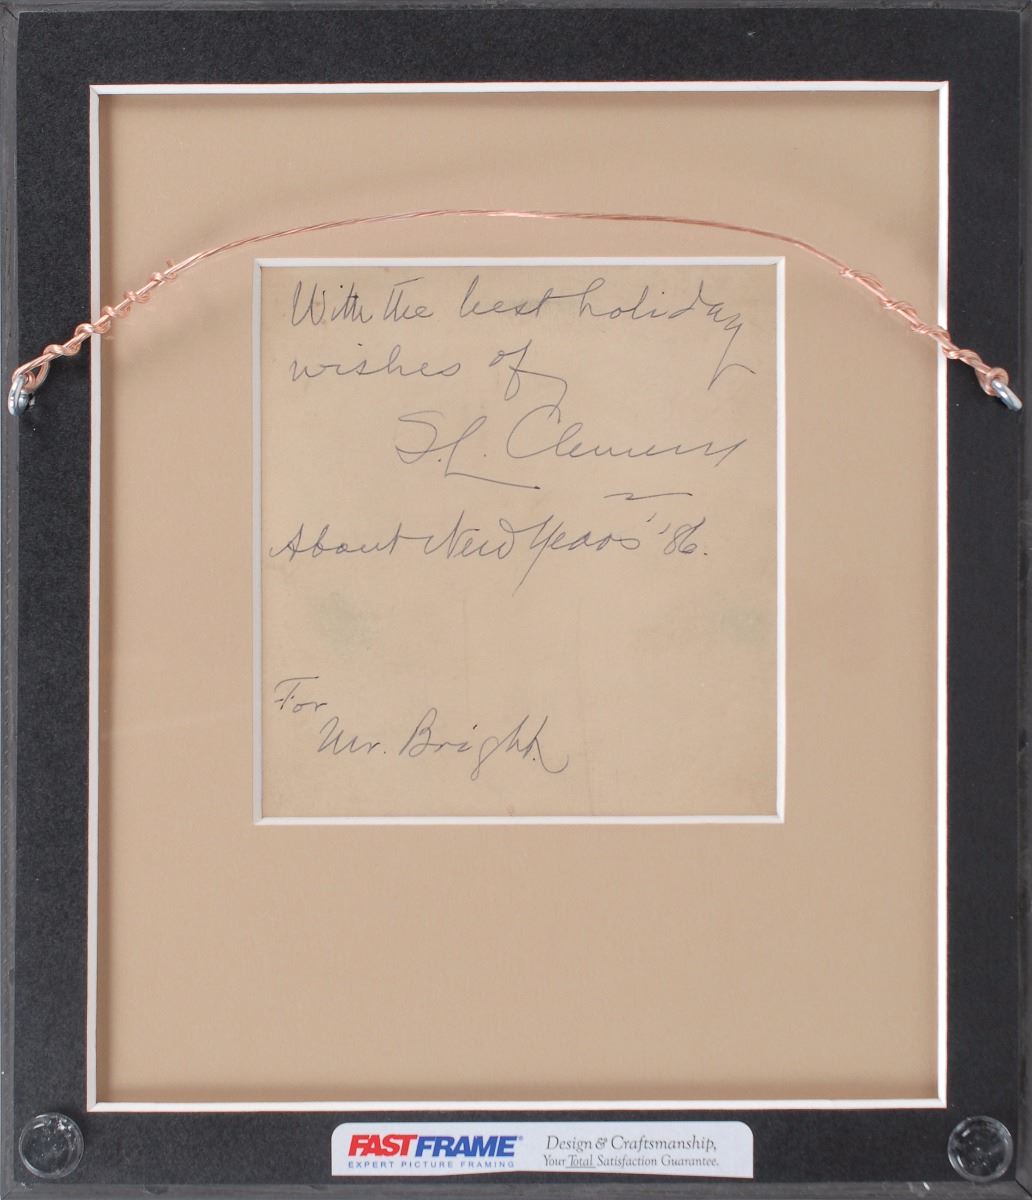 With the best holiday
wishes of
S.L. Clemens
About New Years' '86.
For
Mr. Bright.
FASTFRAME®
EXPERT PICTURE FRAMING
Design & Craftsmanship,
Your Total Satisfaction Guarantee.